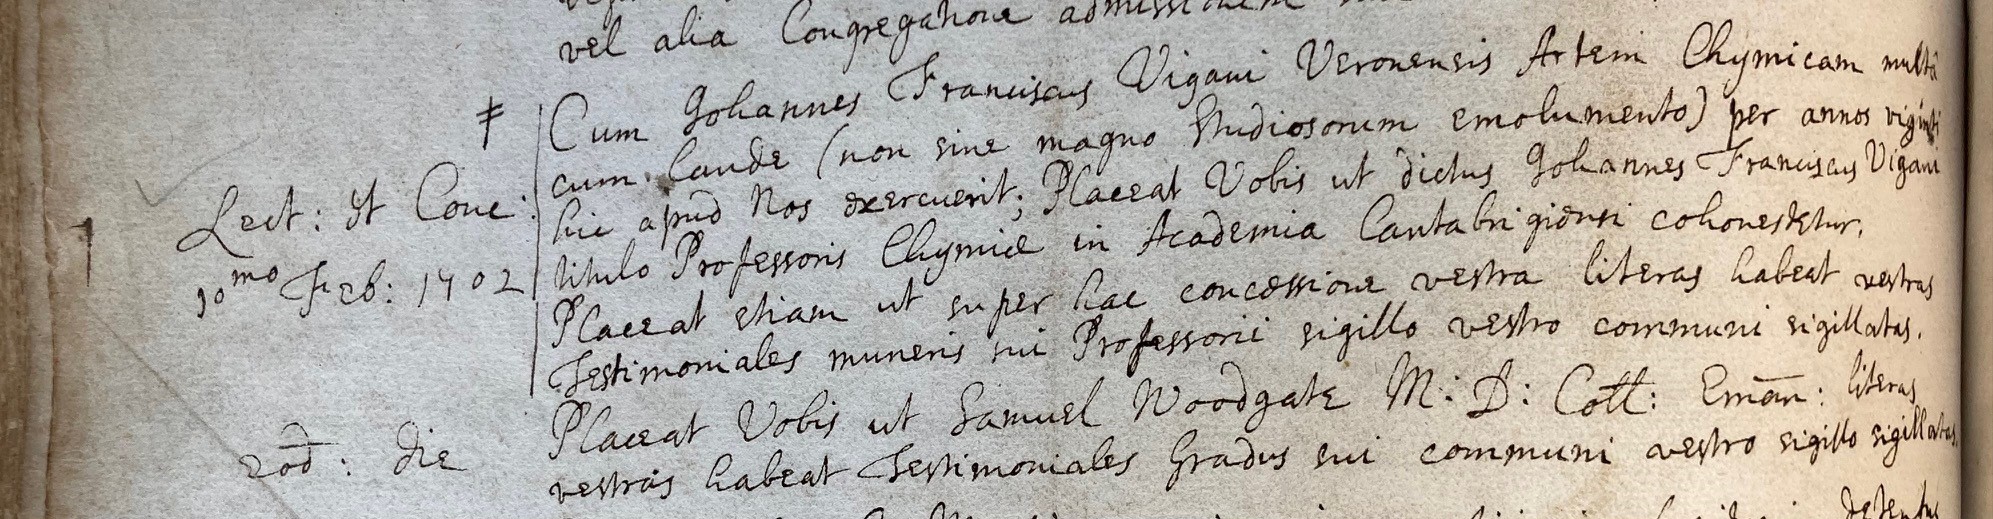 vel alia Congregatione admissionem
‡ Cum Johannes Franciscus Vigani Veronensis Artem Chymicam multâ
cum laude (non sine magno Studiosorum emolumento) per annos viginti
Lect: et Conc: hic apud Nos exercuerit; Placeat Vobis ut dictus Johannes Franciscus Vigani
titulo Professoris Chymiæ in Academia Cantabrigiensi cohonestetur.
10mo Feb: 1702 Placeat etiam ut super hac concessione vestra literas habeat vestras
Testimoniales muneris sui Professorii sigillo vestro communi sigillatas.
Placeat Vobis ut Samuel Woodgate M: D: Coll: Eman: literas
eod: die vestras habeat Testimoniales Gradus sui communi vestro sigillo sigillatas.